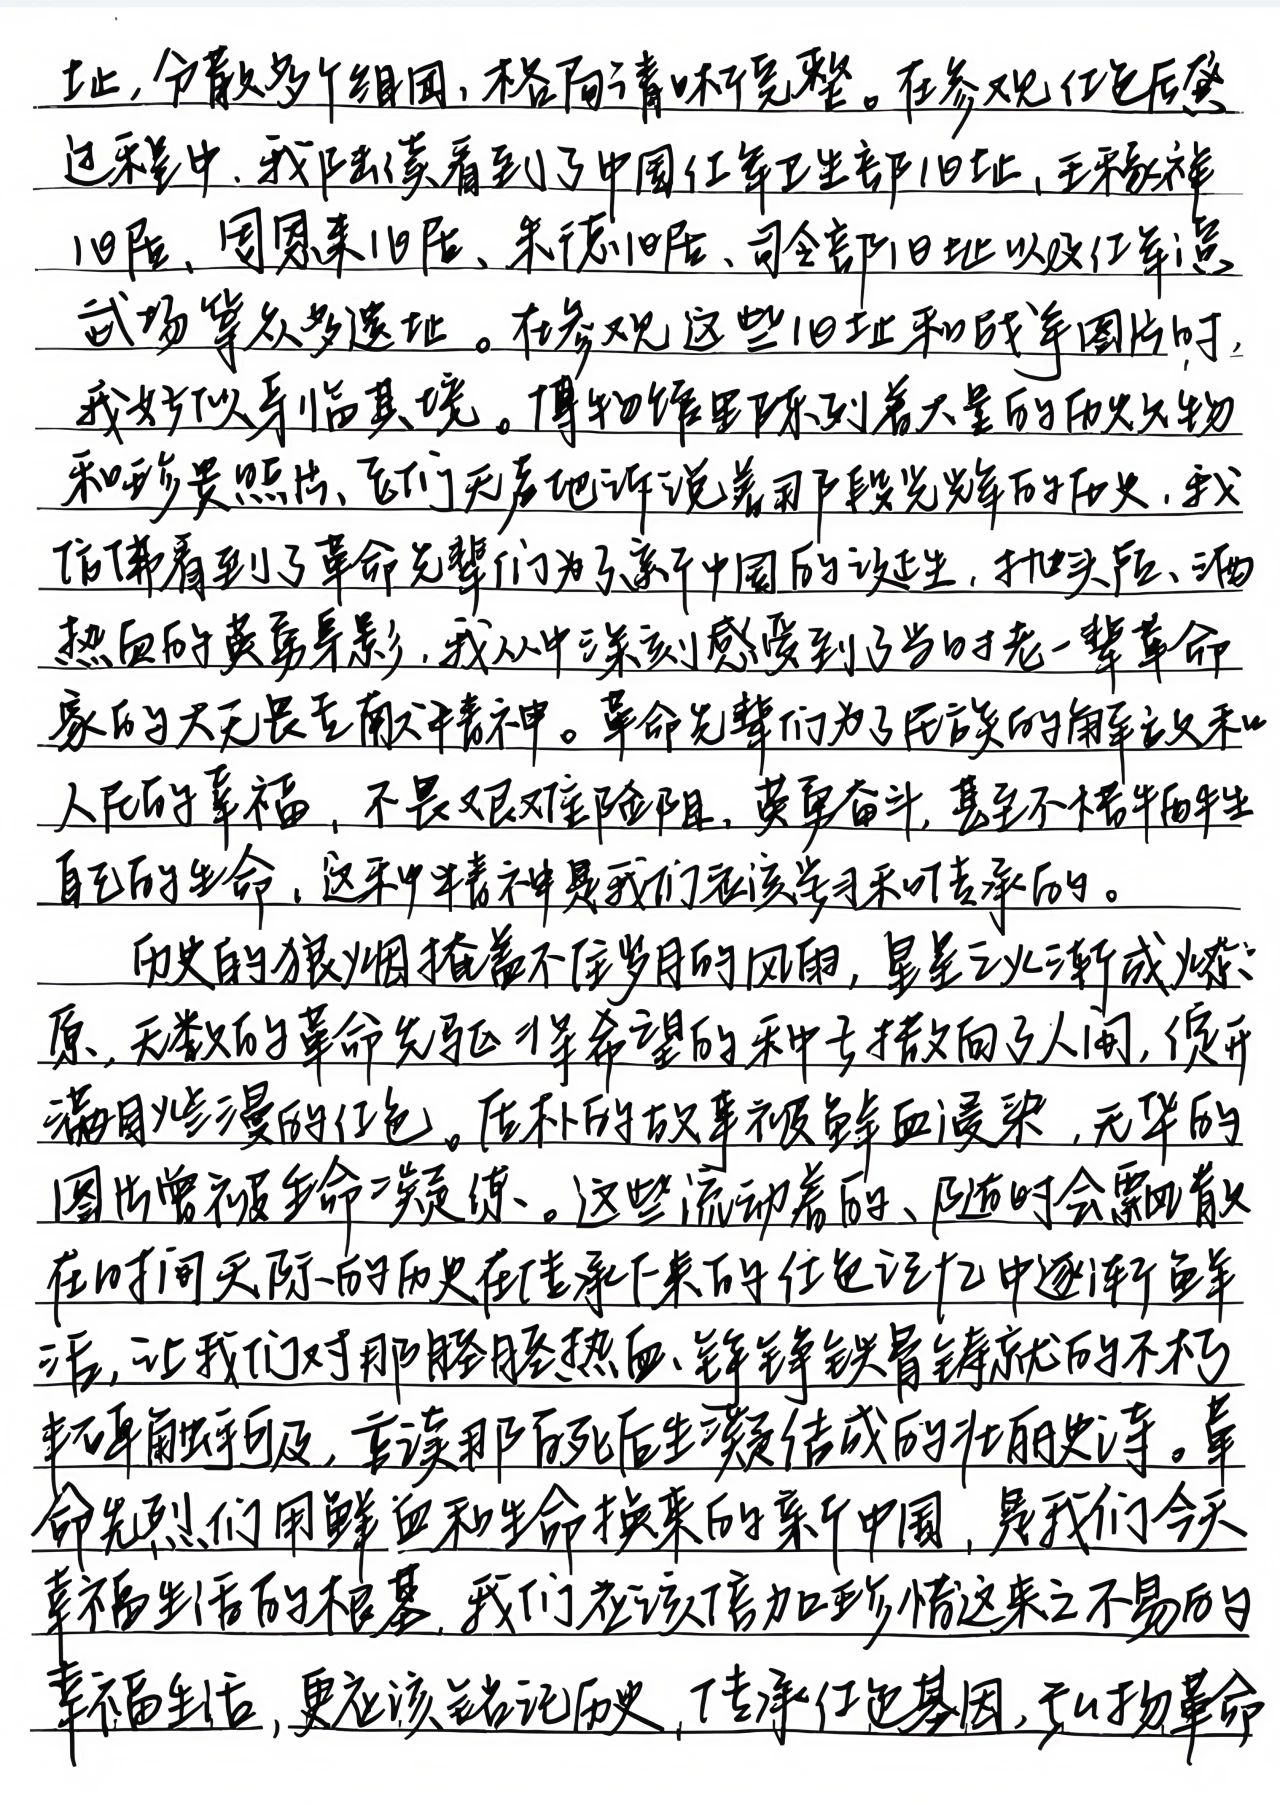 址，分散多个组团，格局清晰完整。在参观红色后感
过程中，我陆续看到了中国红军卫生部旧址、王稼祥
旧居、周恩来旧居、朱德旧居、司令部旧址以及红军演
武场等众多遗址。在参观这些旧址和战争图片时，
我好似身临其境。博物馆里陈列着大量的历史文物
和珍贵照片、它们无声地诉说着那段光辉的历史，我
仿佛看到了革命先辈们为了新中国的诞生，抛头颅、洒
热血的英勇身影，我从中深刻感受到了当时老一辈革命
家的大无畏奉献精神。革命先辈们为了民族的解放和
人民的幸福，不畏艰难险阻，英勇奋斗，甚至不惜牺牲
自己的生命，这种精神是我们应该学习和传承的。
历史的狼烟掩盖不住岁月的风雨，星星之火渐成燎
原，无数的革命先驱将希望的种子播散向了人间，绽开
满目烂漫的红色。质朴的故事被鲜血浸染，无华的
图片曾被生命凝练。这些流动着的、随时会飘散
在时间天际的历史在传承下来的红色记忆中逐渐鲜
活，让我们对那腔腔热血、铮铮铁骨铸就的不朽
丰碑触手可及，言读那向死后生凝结成的壮丽史诗。革
命先烈们用鲜血和生命换来的新中国，是我们今天
幸福生活的根基，我们应该倍加珍惜这来之不易的
幸福生活，更应该铭记历史，传承红色基因，弘扬革命